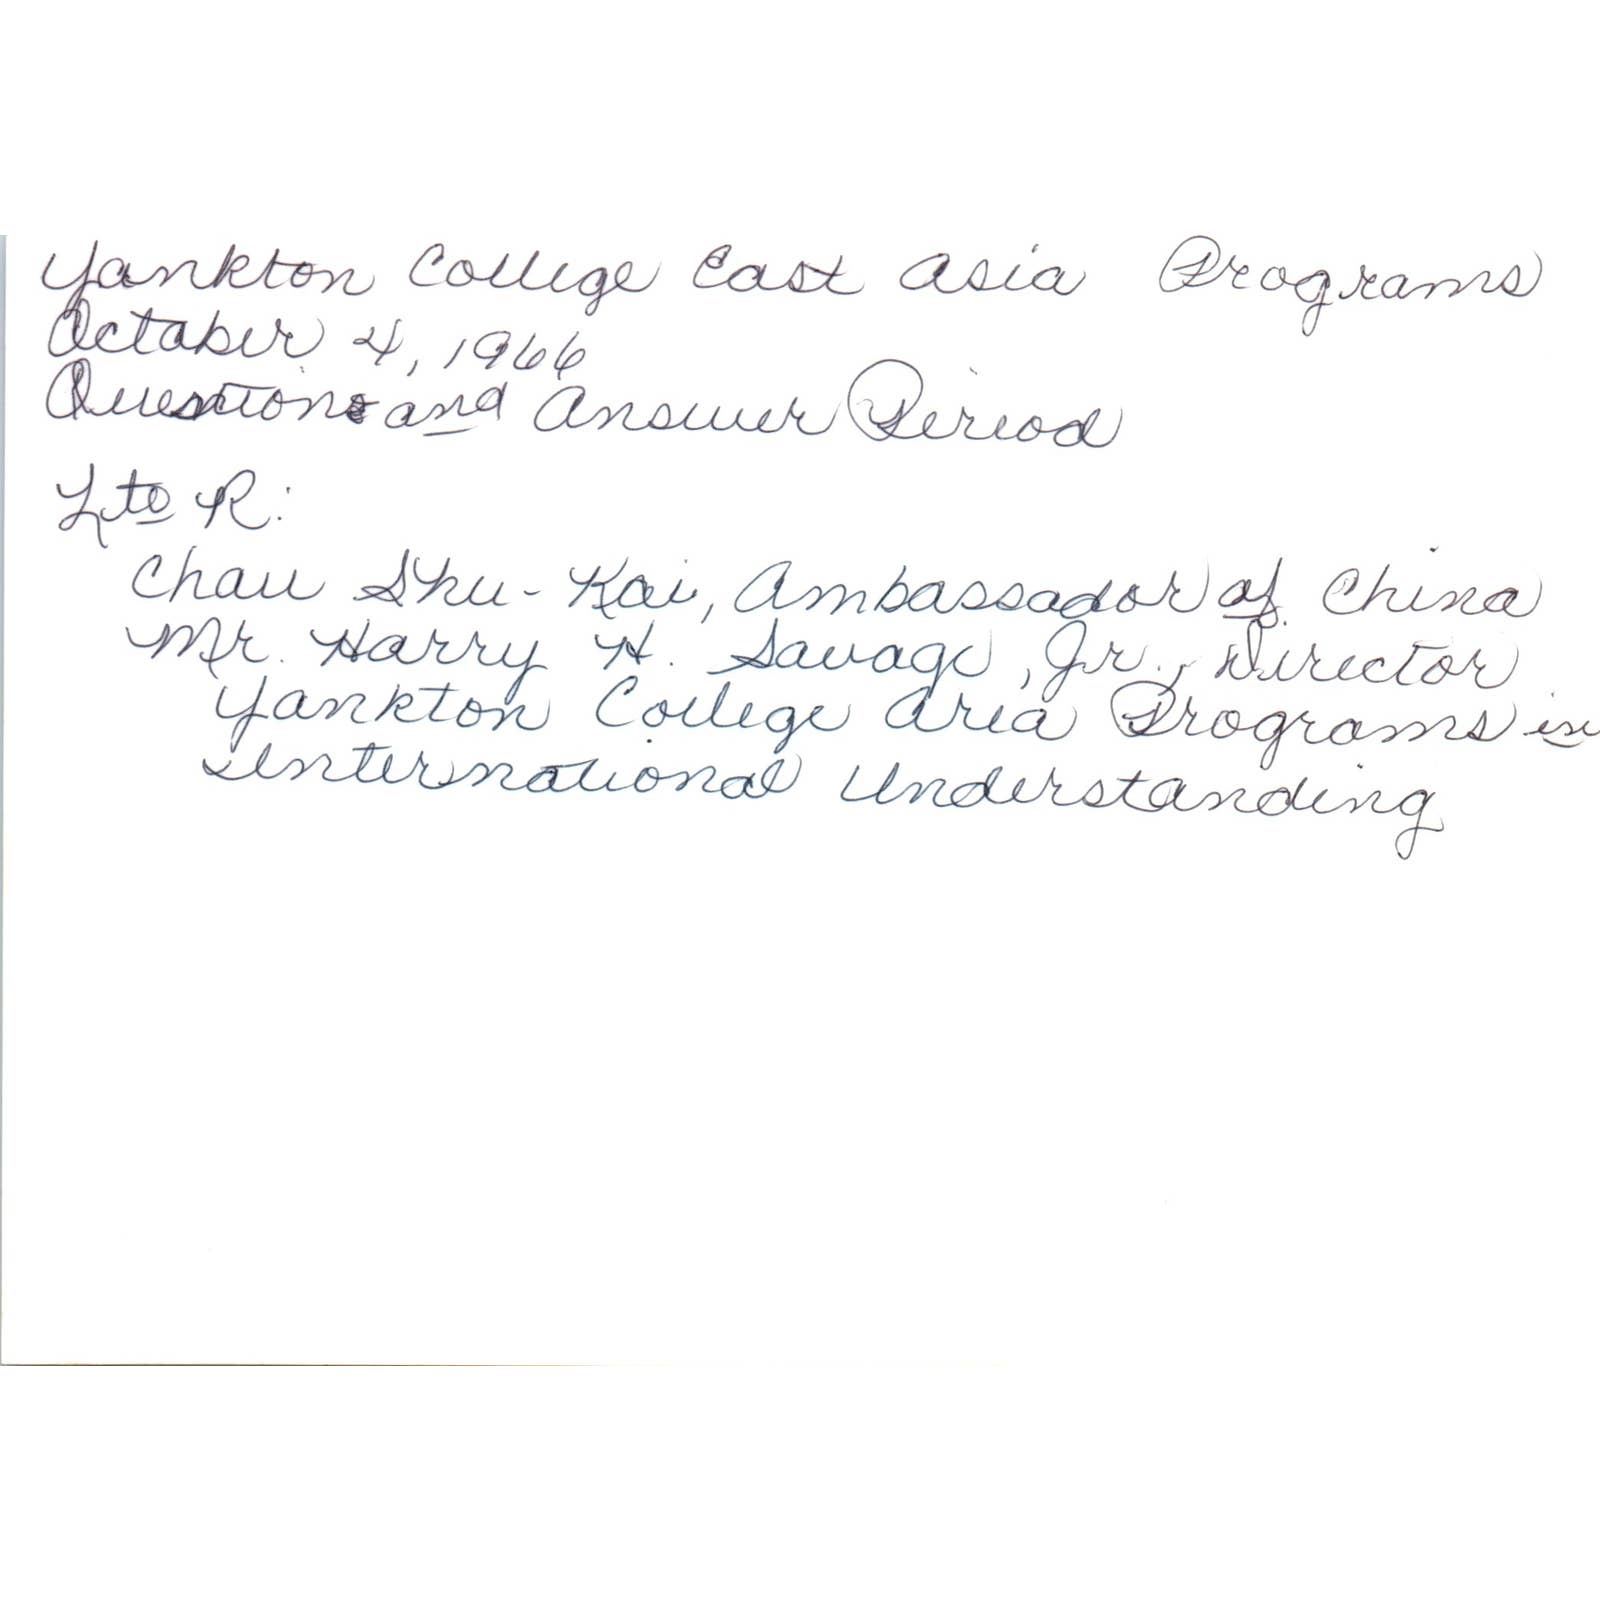 Yankton College East Asia Programs
October 4, 1966
Question and Answer Period
L to R:
Chau Shu-Kai, Ambassador of China
Mr. Harry H. Savage, Jr., Director
Yankton College Area Programs in
International Understanding